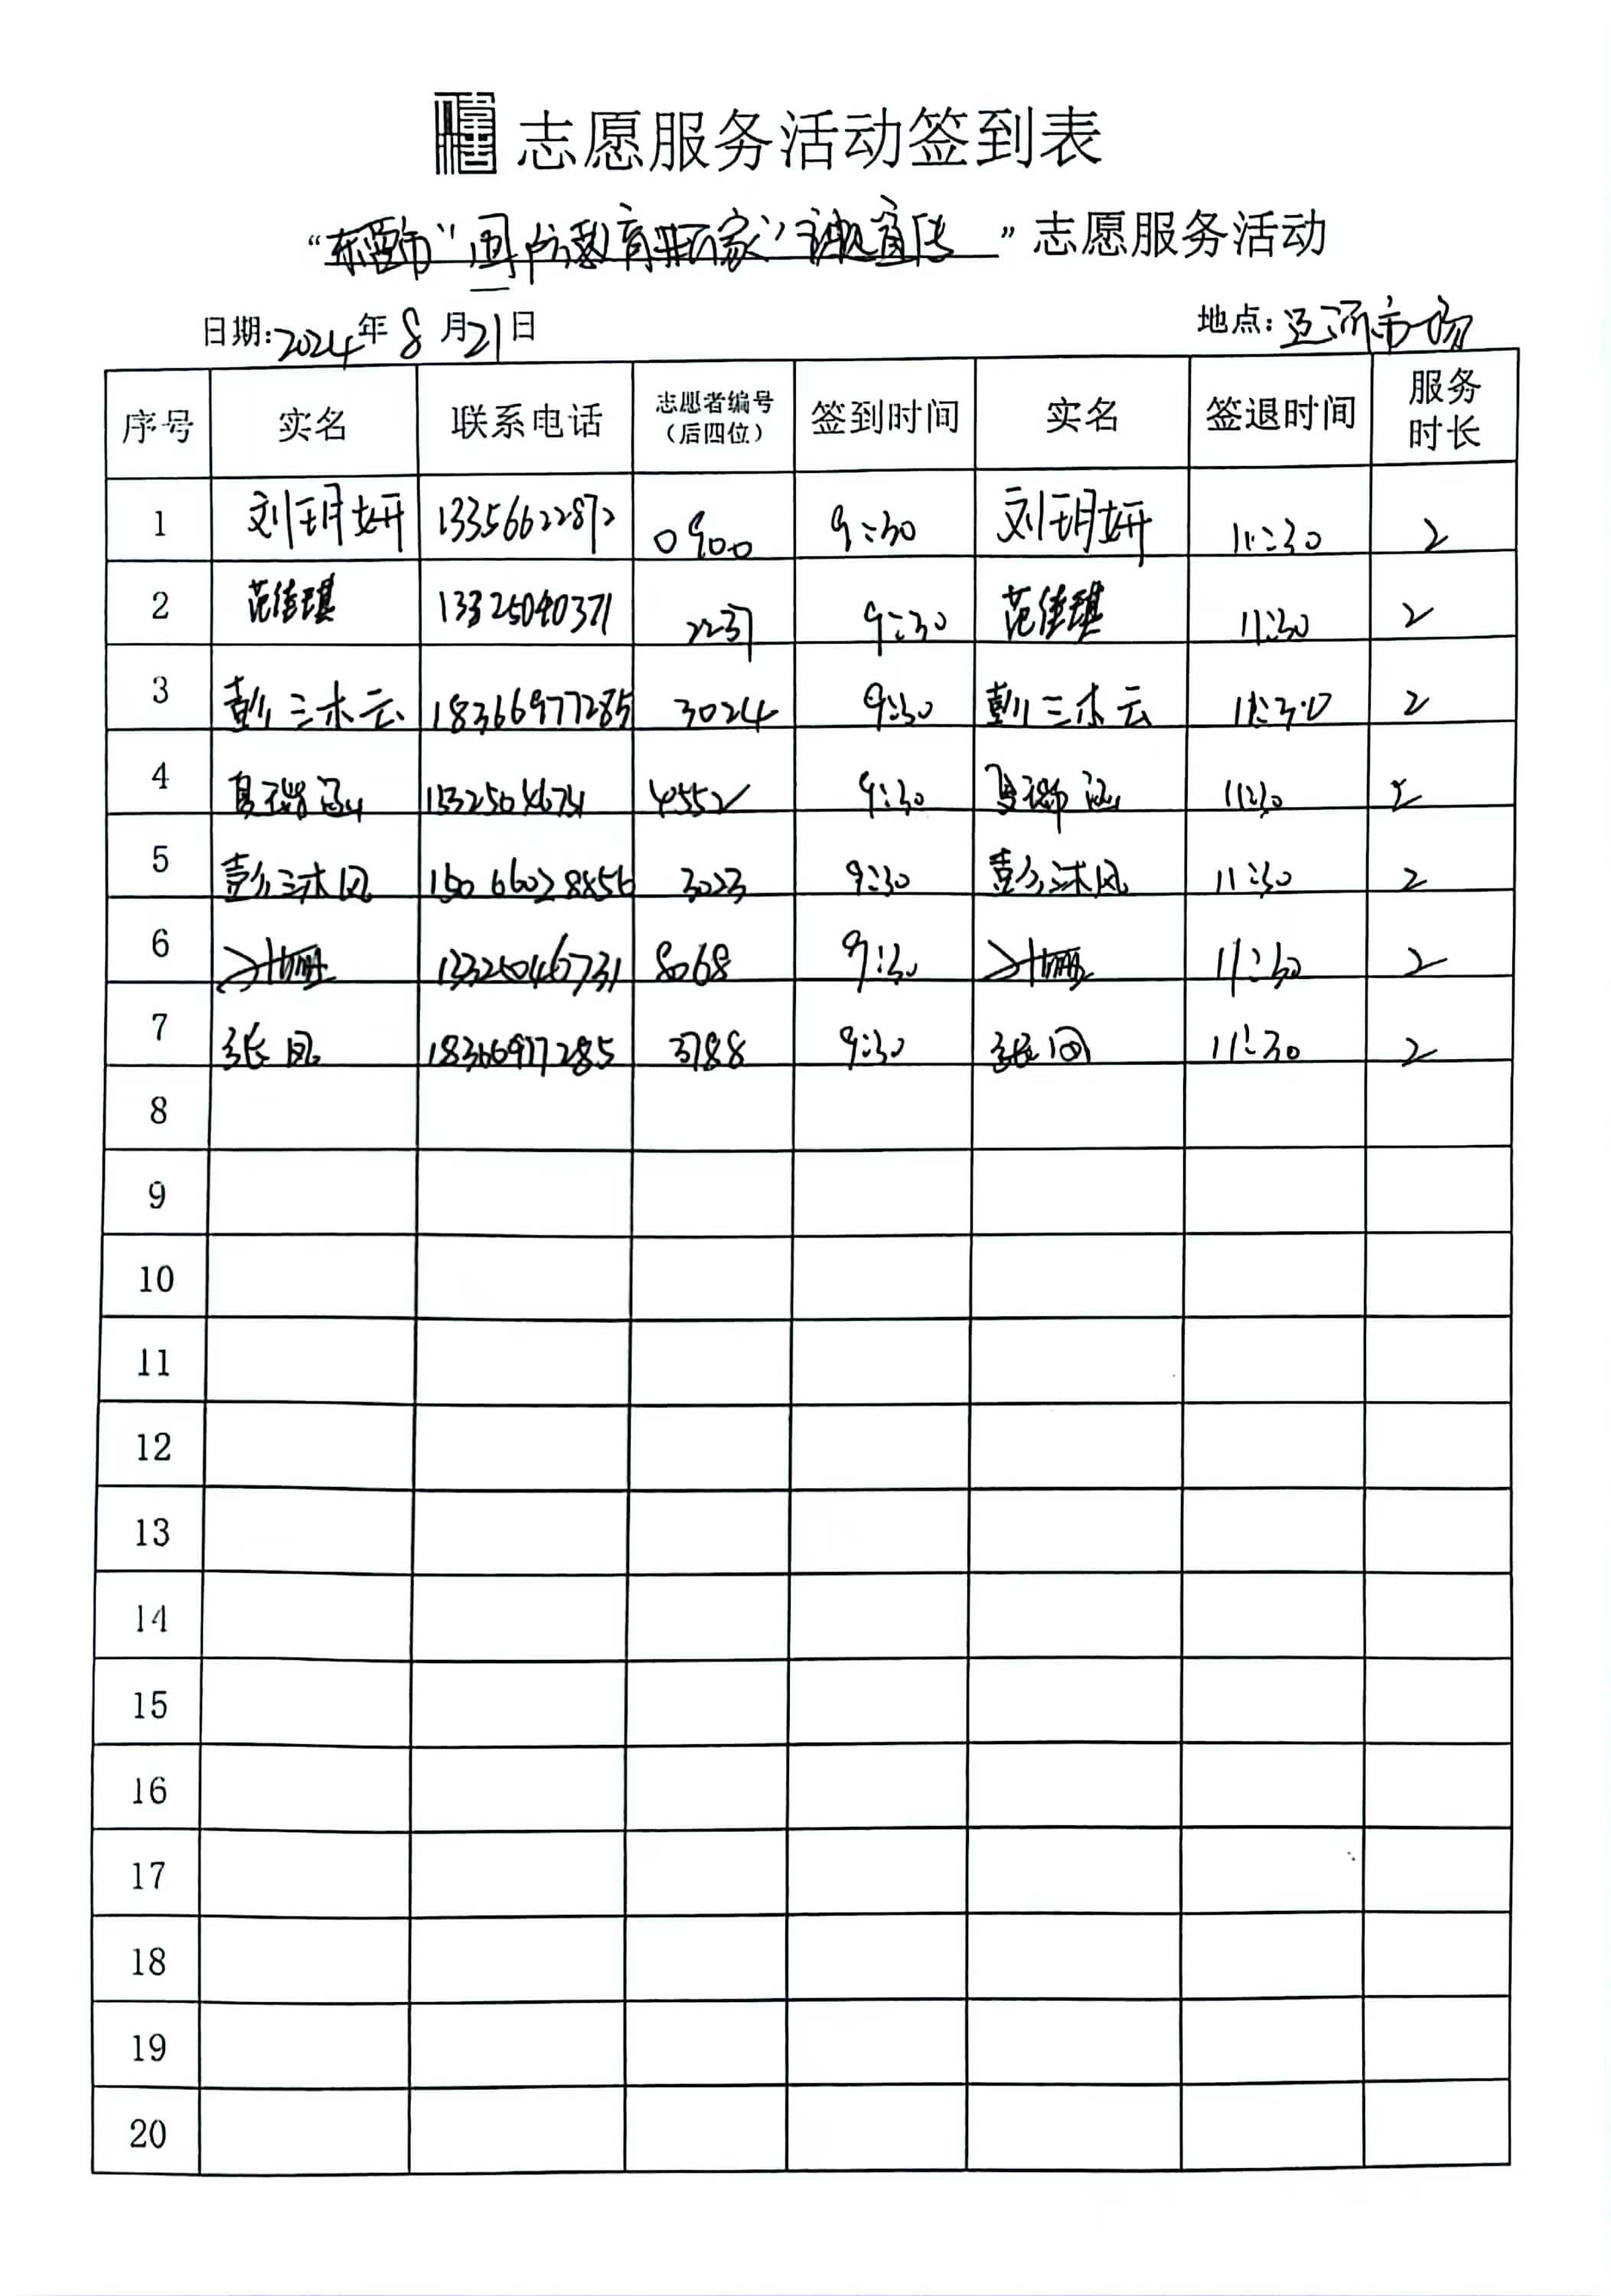 志愿服务活动签到表
“东营市“国防教育进万家”主题宣传”志愿服务活动
日期:2024年8月21日 地点:辽河市场
序号 实名 联系电话 志愿者编号(后四位) 签到时间 实名 签退时间 服务时长
1 刘玥妍 13356622872 0900 9:30 刘玥妍 11:30 2
2 范佳琪 13325040371 2237 9:30 范佳琪 11:30 2
3 彭三木云 18366977285 3024 9:30 彭三木云 11:30 2
4 4552 9:30 11:30 2
5 彭三木风 15066028856 3023 9:30 彭三木风 11:30 2
6 13325046731 8068 9:30 11:30 2
7 张凤 18366977285 3788 9:30 张凤 11:30 2
8
9
10
11
12
13
14
15
16
17
18
19
20